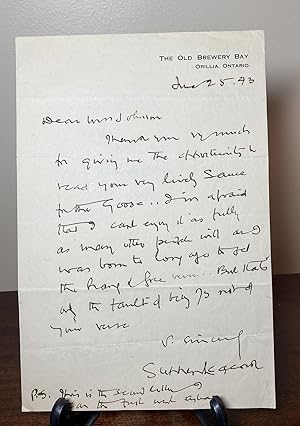 THE OLD BREWERY BAY
ORILLIA, ONTARIO
June 25. 43
Dear Miss Johnson
Thank you very much
for giving me the opportunity to
read your very lively Sauce
for the Goose.. I'm afraid
that I can't enjoy it as fully
as many other people will and
was born too long ago to get
the hang of free verse.. But that's
only the fault of being 73 not of
your verse
V. Sincerely
Stephen Leacock
P.S. This is the second letter
the first went